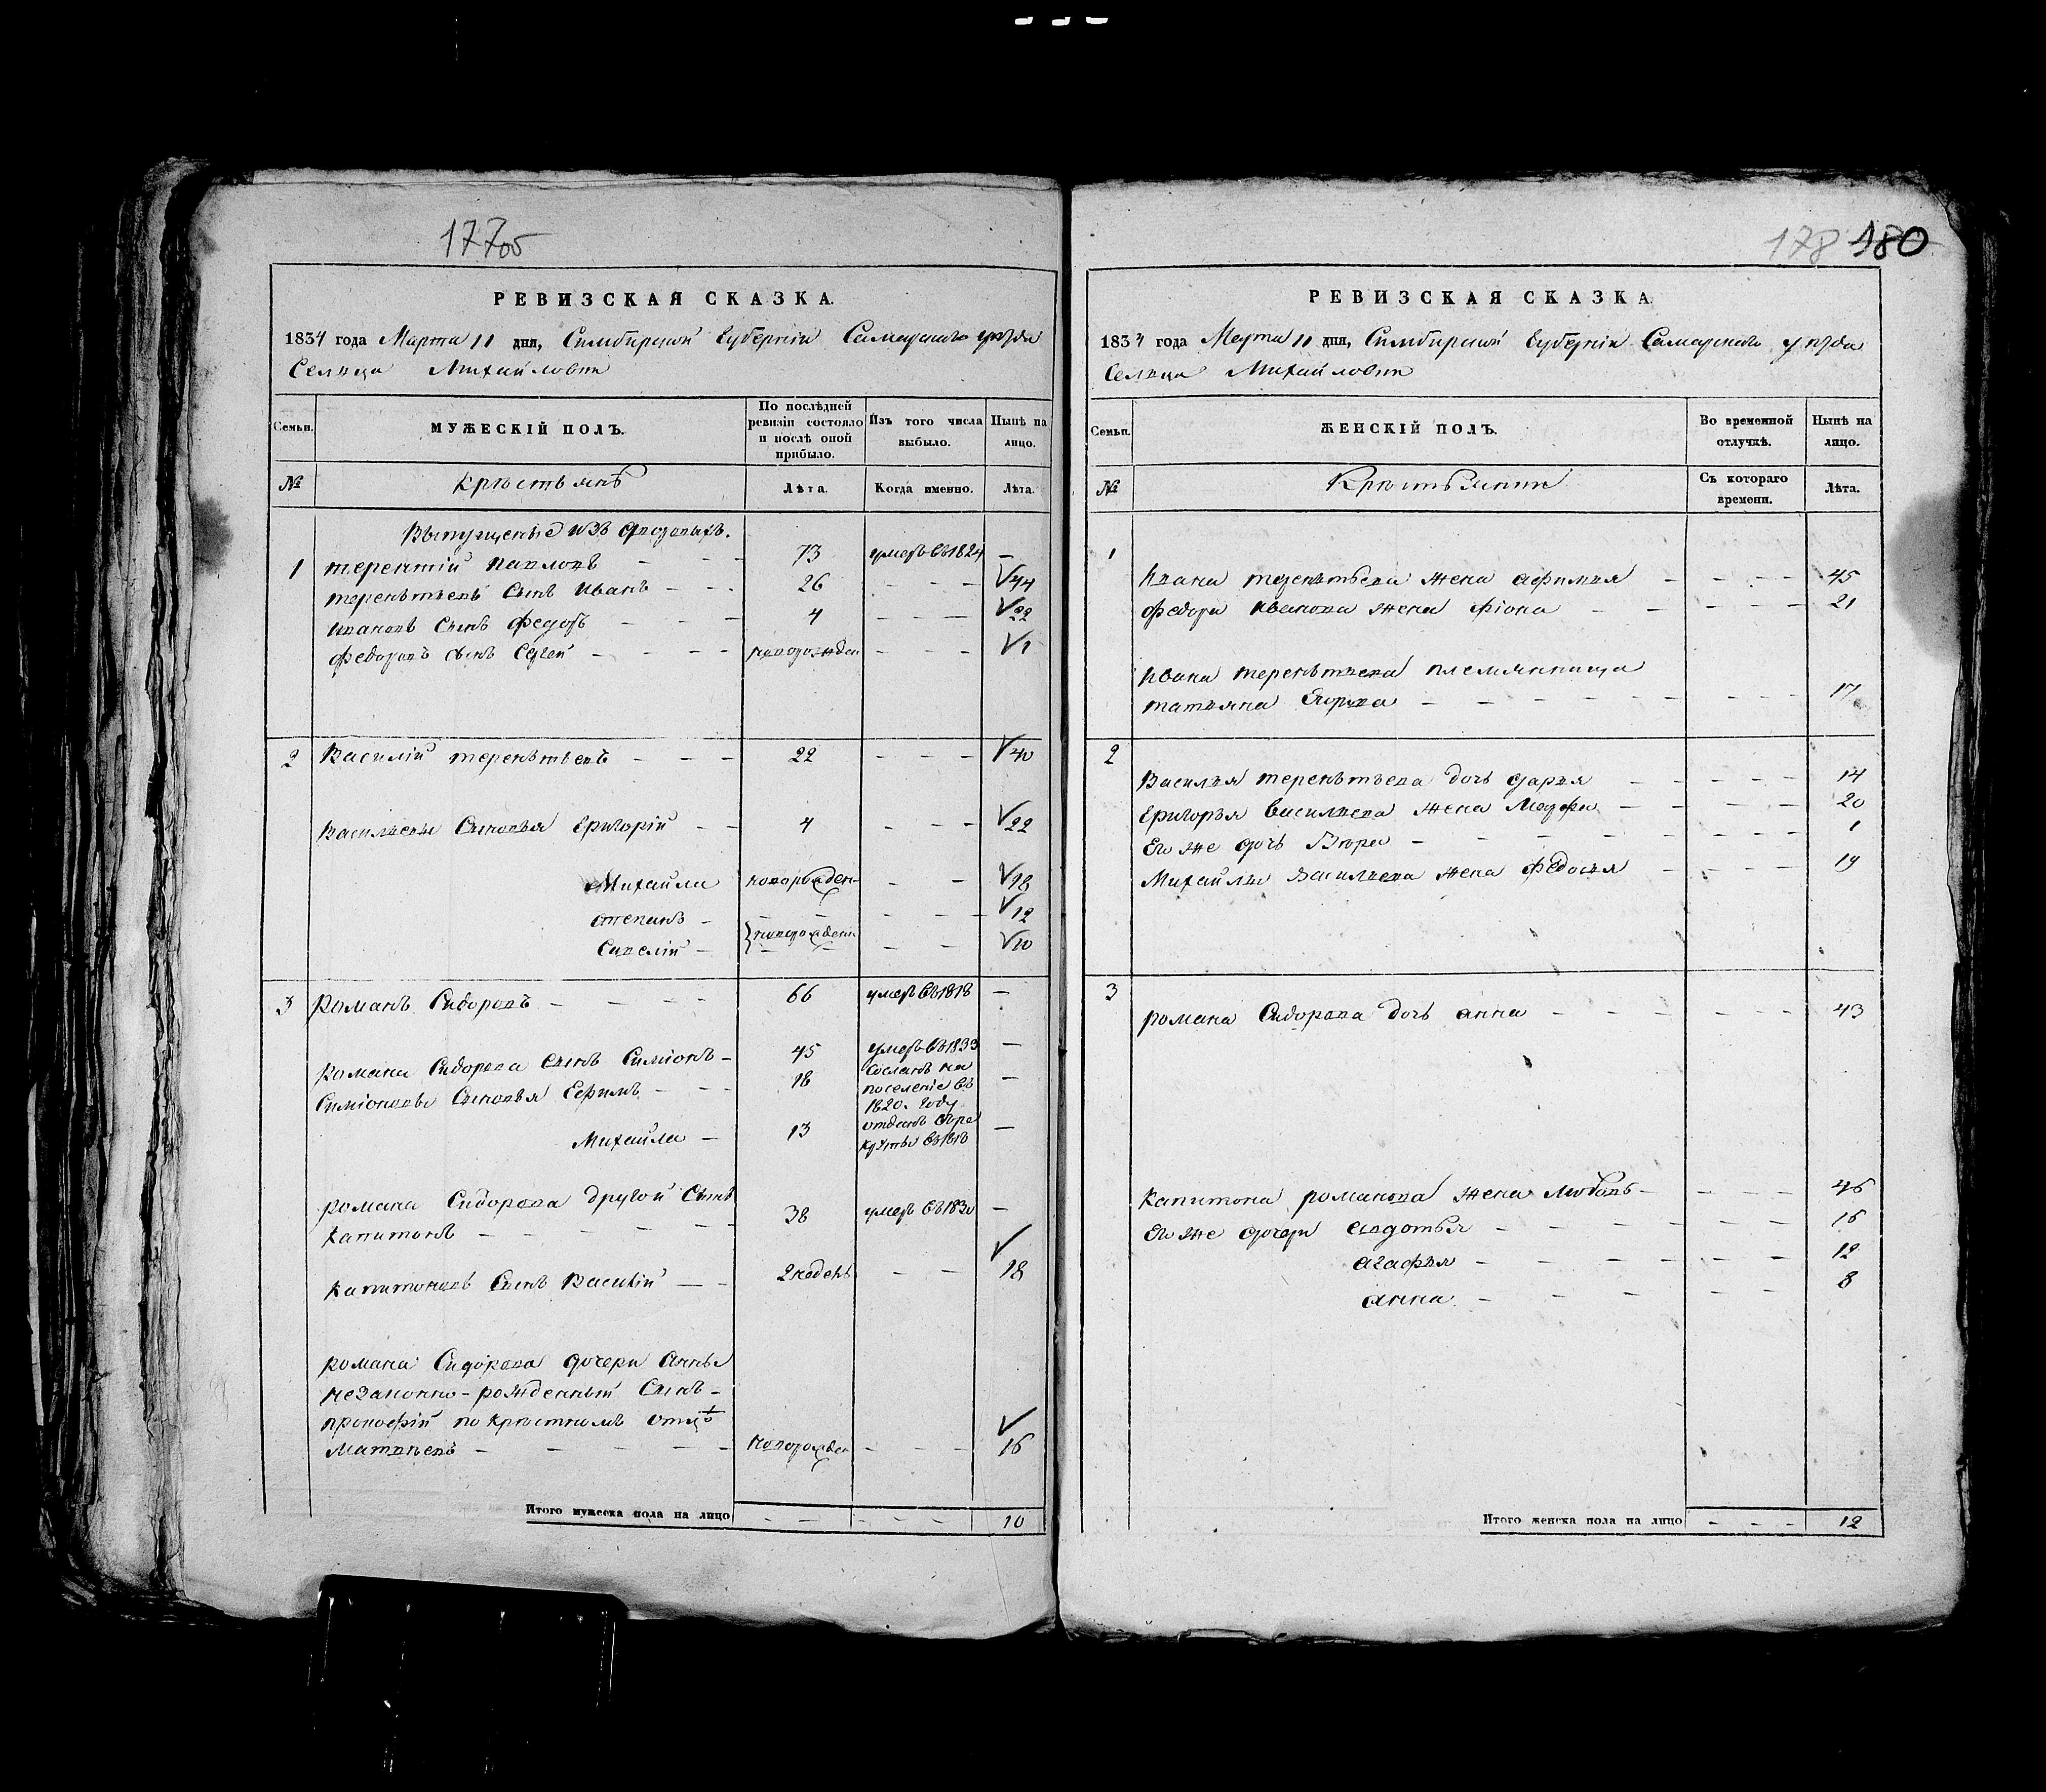 177об
РЕВИЗСКАЯ СКАЗКА.
1834 года Марта 11 дня, Симбирской Губерніи Самарскаго уѣзда
Сельца Михайловки
Семьи.
МУЖЕСКІЙ ПОЛЪ.
По послѣдней ревизіи состояло и послѣ оной прибыло.
Изъ того числа выбыло.
Нынѣ на лицо.
№
Крѣстьянъ
Лѣта.
Когда именно.
Лѣта.
Выпущеные изъ
1 терентій павловъ - - 73 умеръ въ 1824 —
терентьевъ Сынъ Иванъ - - - 26 - - - √44
Ивановъ Сынъ Федоръ - - - 4 - - - √22
Федоровъ сынъ Сергей - - - - новорожден - - - √1
2 Василій терентьевъ - - - 22 - - - √40
Васильевы Сыновья Григорій - - 4 - - - √22
Михайла новорожден - - √18
степанъ - - - - - - √12
Савелій - } новорожден - - √10
3 Романъ Сидоровъ - - - - 66 умеръ въ 1818 —
Романа Сидорова Сынъ Симіонъ - 45 умеръ въ 1833 —
Симіоновы Сыновья Ефимъ - - - 18 Сосланъ на поселеніе въ 1820. году —
Михайла - 13 отданъ въ рекруты въ 1818 —
Романа Сидорова другой Сынъ
капитонъ - - - - 38 умеръ въ 1830 —
капитоновъ Сынъ Василій — - 2 недель - - √18
Романа Сидорова дочери Анны
незаконно-рожденный Сынъ -
прокофій по крѣстномъ отцѣ
Матвѣевъ - - - - - новорожден - - - √16
Итого мужеска пола на лицо - - - - - 10
178 180
РЕВИЗСКАЯ СКАЗКА.
1834 года Марта 11 дня, Симбирской Губерніи Самарскаго уѣзда
Сельца Михайловки
Семьи.
ЖЕНСКІЙ ПОЛЪ.
Во временной отлучкѣ.
Нынѣ на лицо.
№
Крѣстьянки
Съ котораго времени.
Лѣта.
1
Ивана терентьева жена афимья - - - - 45
Федора Иванова жена Фіона - - - - - 21
Ивана терентьева племянница
татьяна Егорова - - - - - - - - 17
2
Василья терентьева дочь дарья - - - - 14
Григорья Васильева жена Марфа - - - - 20
Его же дочь Вѣра - - - - - - - 1
Михайлы Васильева жена Федосья - - - - 19
3
Романа Сидорова дочь анна - - - - - - 43
Капитона романова жена любовь - - - - 46
Его же дочери авдотья - - - - - - - 16
агафья - - - - - - - 12
анна. - - - - - - - 8
Итого женска пола на лицо - - - 12